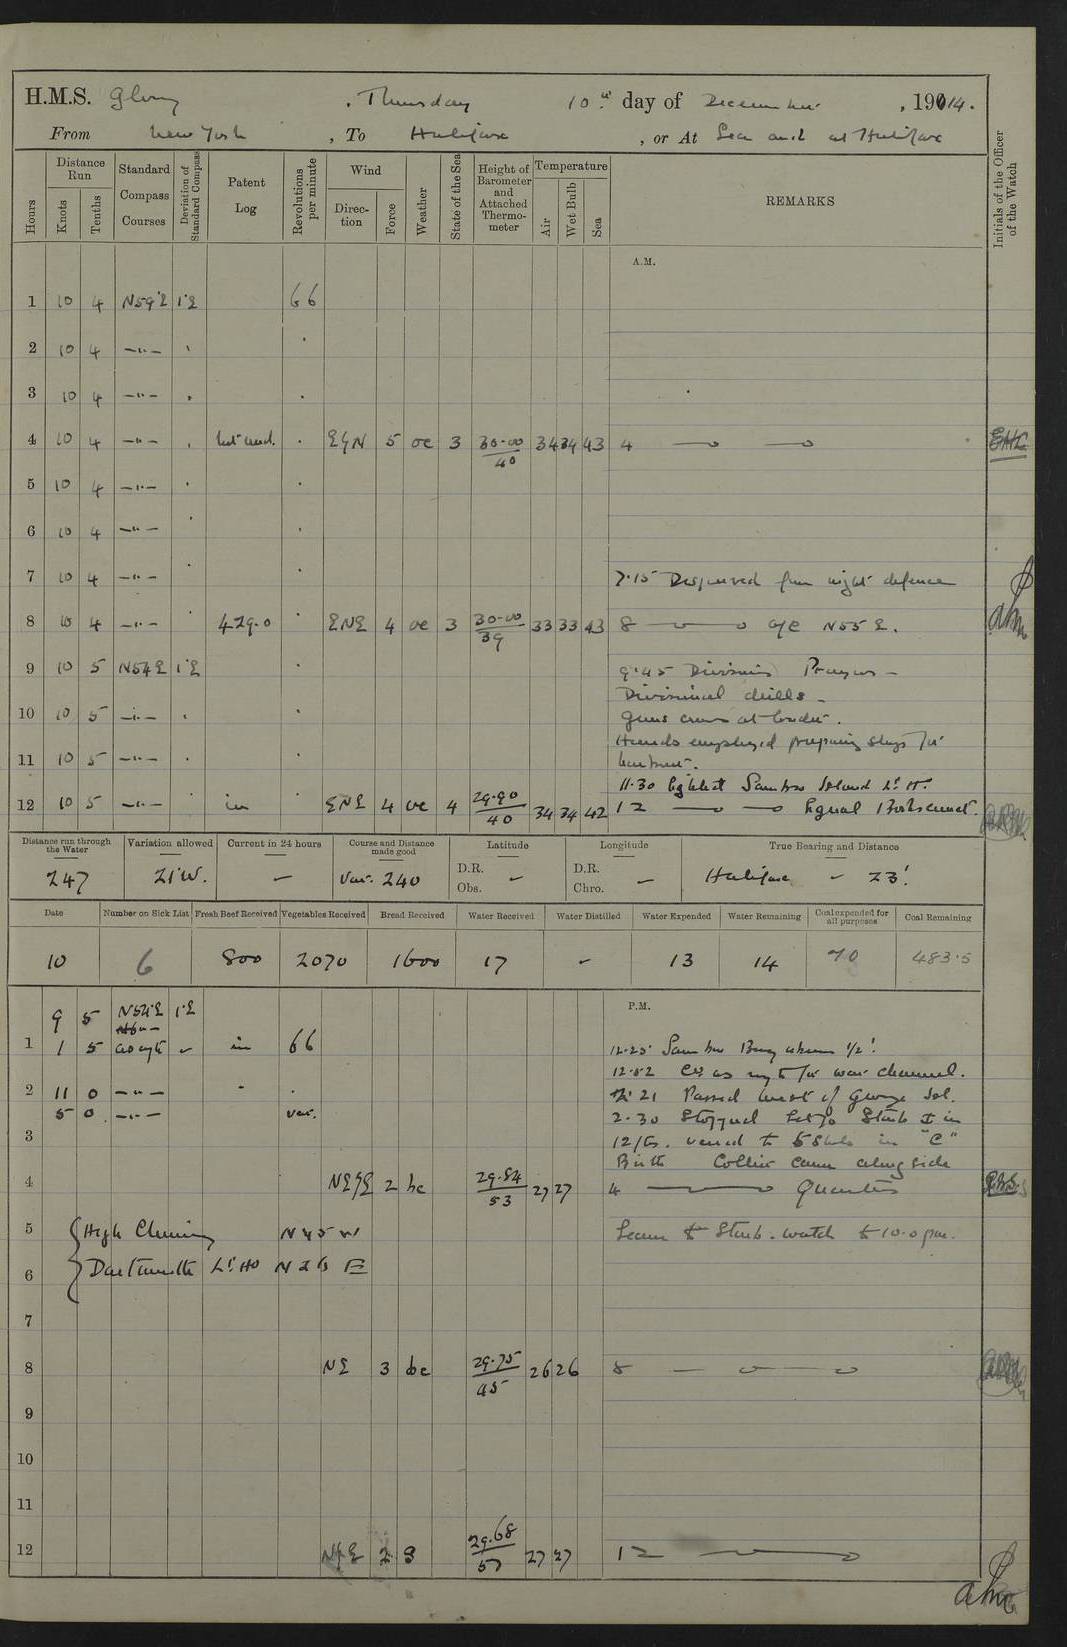 H.M.S. Glory , Thursday 10th day of December , 1914.
From New York , To Halifax , or At Sea and at Halifax
Hours
Distance Run
Knots
Tenths
Standard Compass Courses
Deviation of Standard Compass
Patent Log
Revolutions per minute
Wind
Direction
Force
Weather
State of the Sea
Height of Barometer and Attached Thermometer
Temperature
Air
Wet Bulb
Sea
REMARKS
Initials of the Officer of the Watch
A.M.
1 10 4 N59°E 1°E 66
2 10 4 —"—
3 10 4 —"—
4 10 4 —"— ExN 5 oc 3 30·00/40 34 34 43 4
5 10 4 —"—
6 10 4 —"—
7 10 4 —"— 7·15 Dispersed from night defence
8 10 4 —"— 429·0 ENE 4 oc 3 30·00/39 33 33 43 8 a/c N55E.
9 10 5 N54E 1°E 9·45 Divisions Prayers –
Divisional drills –
10 10 5 —"— Guns crews at loader.
Hands employed preparing ship for
11 10 5 —"— harbour.
11·30 Sighted Sambro Island Lt. H.
12 10 5 —"— in ENE 4 oc 4 29·90/40 34 34 42 12
Distance run through the Water 247
Variation allowed 21°W.
Current in 24 hours –
Course and Distance made good Var. 240
Latitude D.R. Obs. –
Longitude D.R. Chro. –
True Bearing and Distance Halifax – 23'.
Date Number on Sick List Fresh Beef Received Vegetables Received Bread Received Water Received Water Distilled Water Expended Water Remaining Coal expended for all purposes Coal Remaining
10 6 800 2070 1600 17 – 13 14 70 483·5
P.M.
9 5 N54°E 1°E
1 1 5 as reqte in 66 12·25 Sambro Buoy abeam 1/2'.
12·52 Co. as reqte for war channel.
2 11 0 —"— 2·21 Passed west of George Isl.
5 0 —"— var. 2·30 Stopped Let go Starb in
3 12 fms. veered to 5 Shls in "C"
Birth Collier came alongside
4 NExE 2 bc 29·84/53 27 27 4 Quarters
5 High Chimney N45W Leave to Starb. watch to 10·0 pm.
6 Dartmouth Lt. Ho N26E
7
8 NE 3 bc 29·75/45 26 26 8
9
10
11
12 2 29·68/57 27 27 12